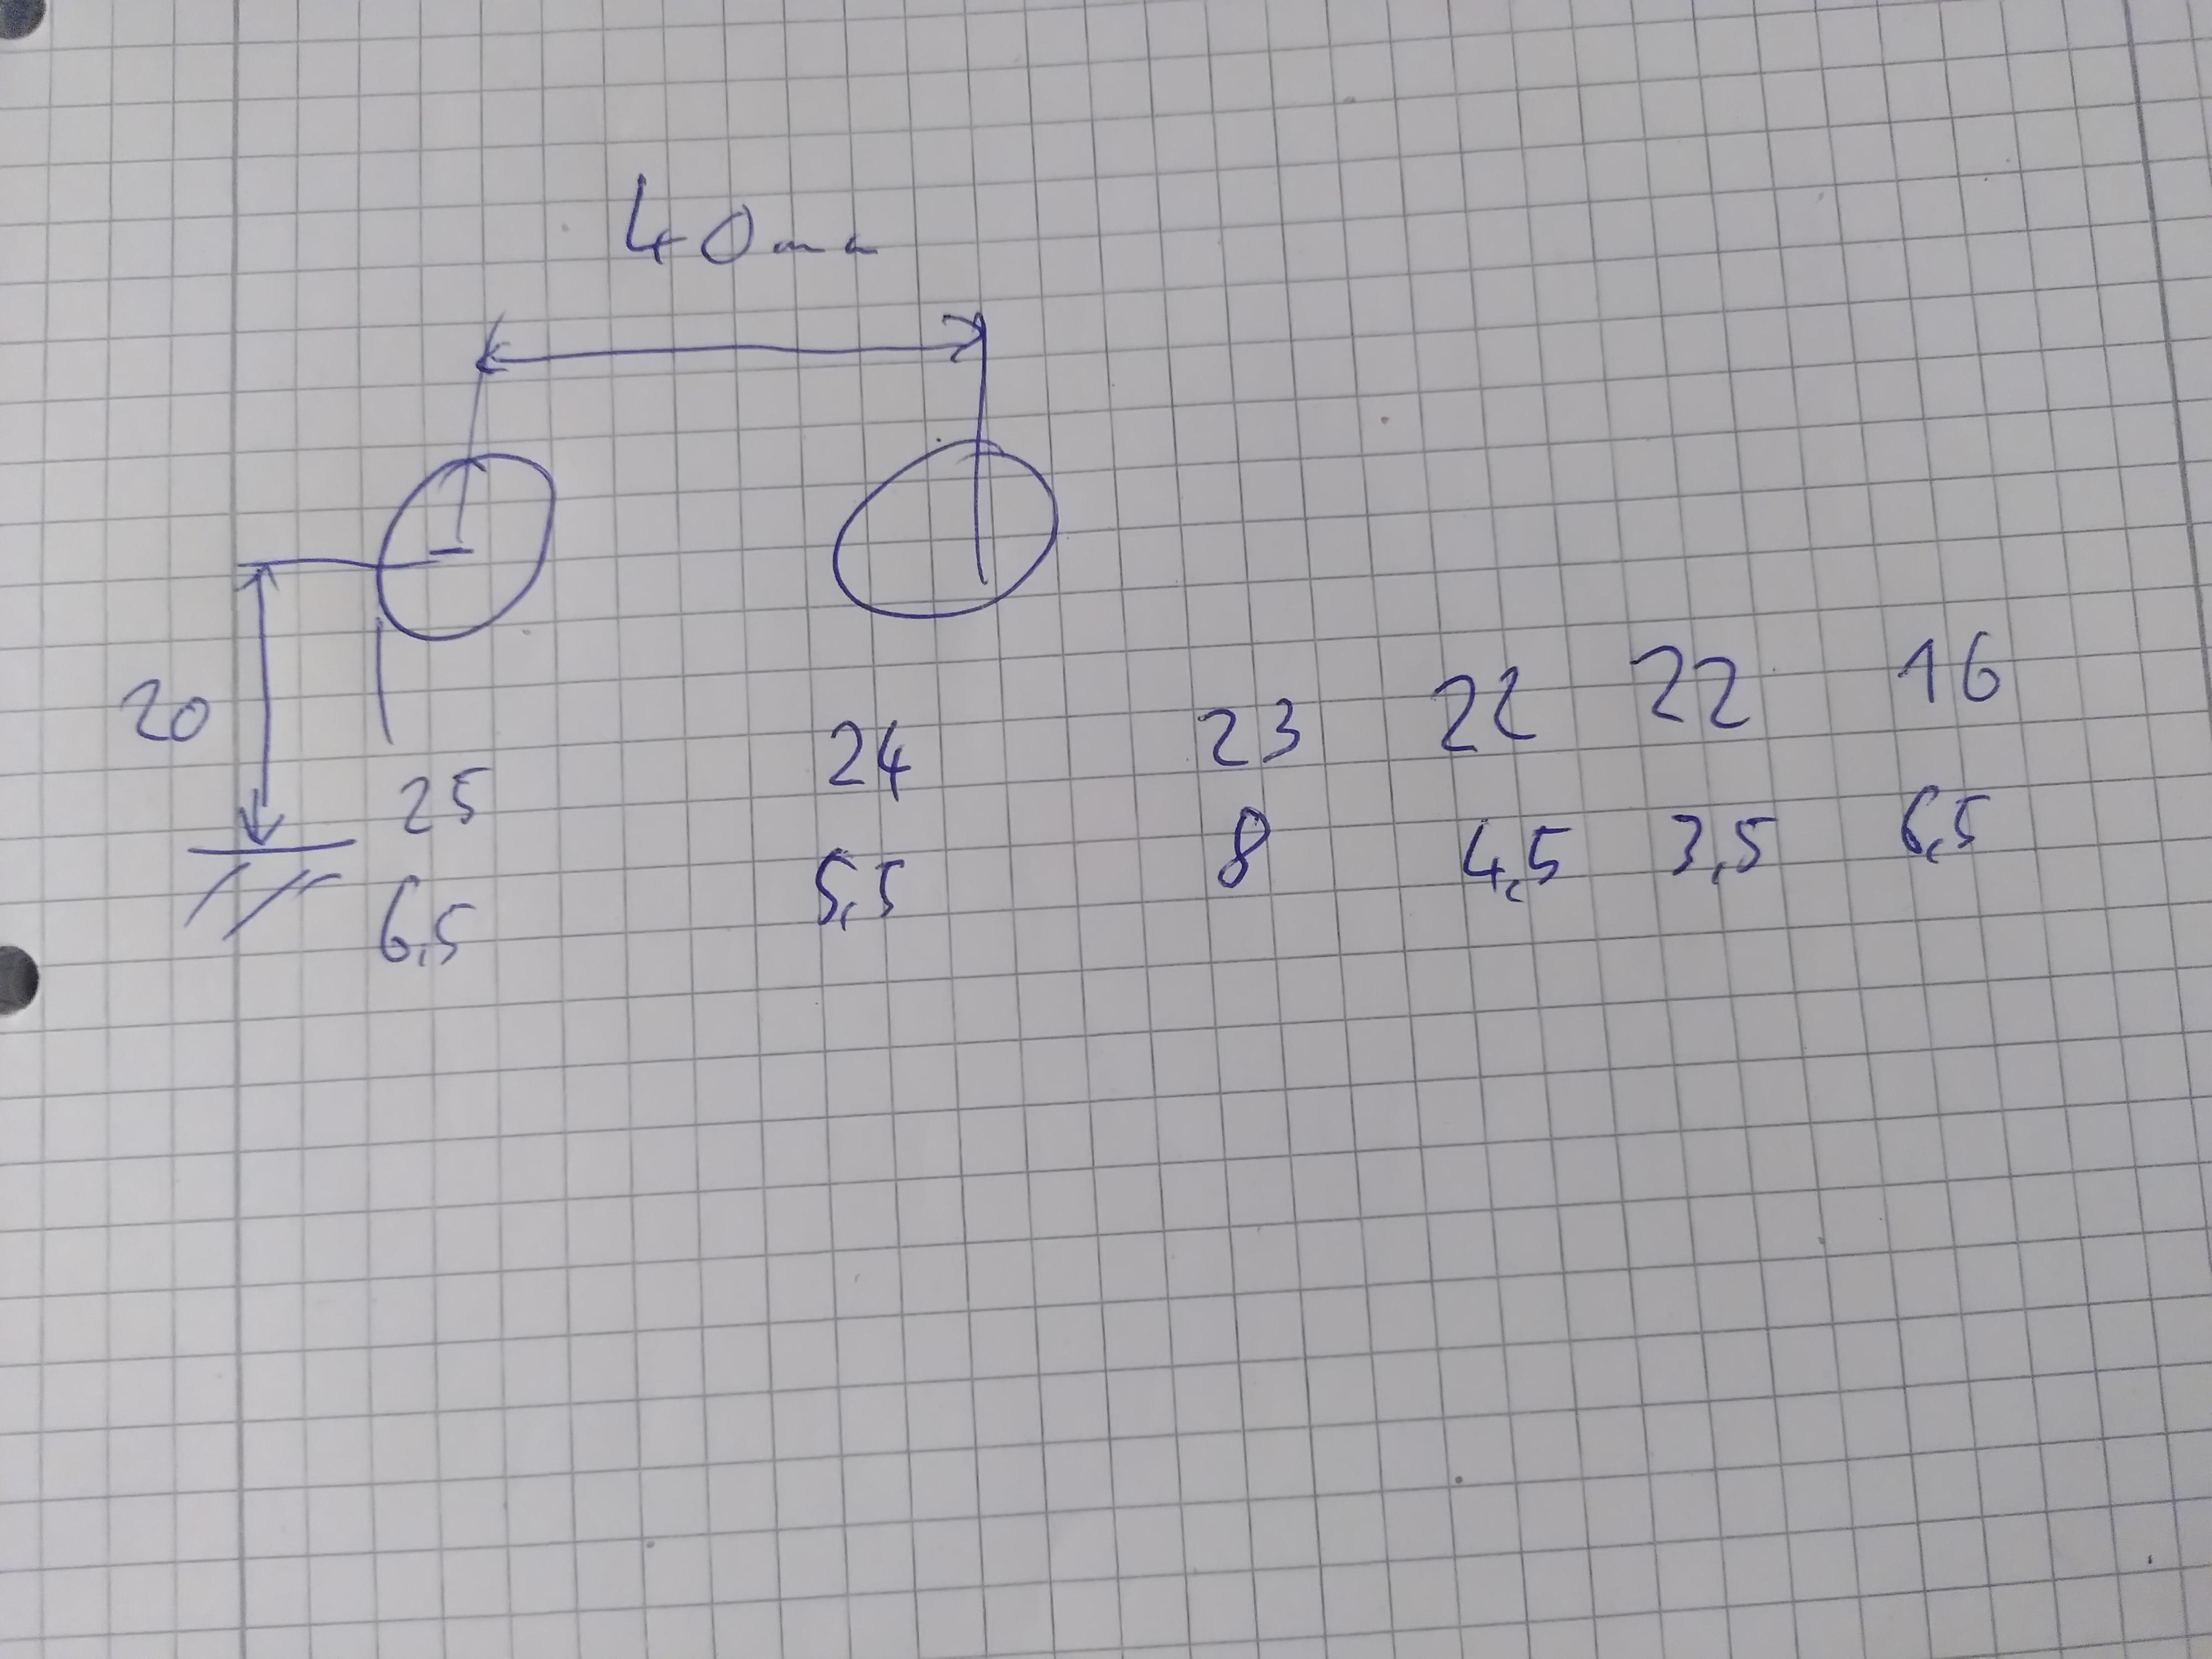 40mm
20
25 24 23 22 22 16
6,5 5,5 8 4,5 3,5 6,5